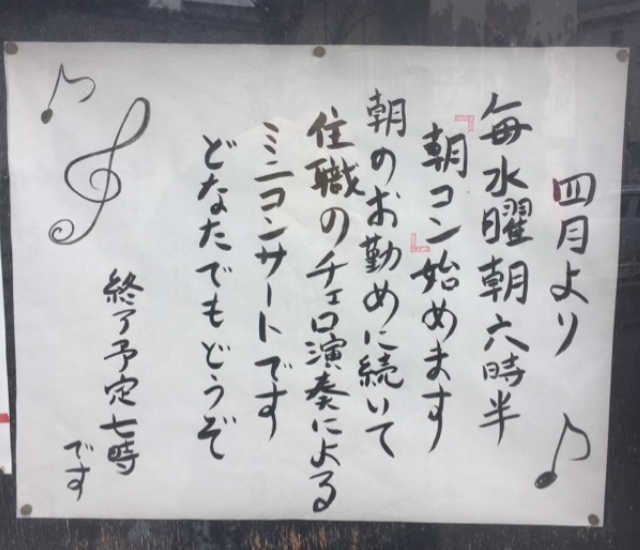 四月より
毎水曜朝六時半
『朝コン』始めます
朝のお勤めに続いて
住職のチェロ演奏による
ミニコンサートです
どなたでもどうぞ
終了予定七時
です